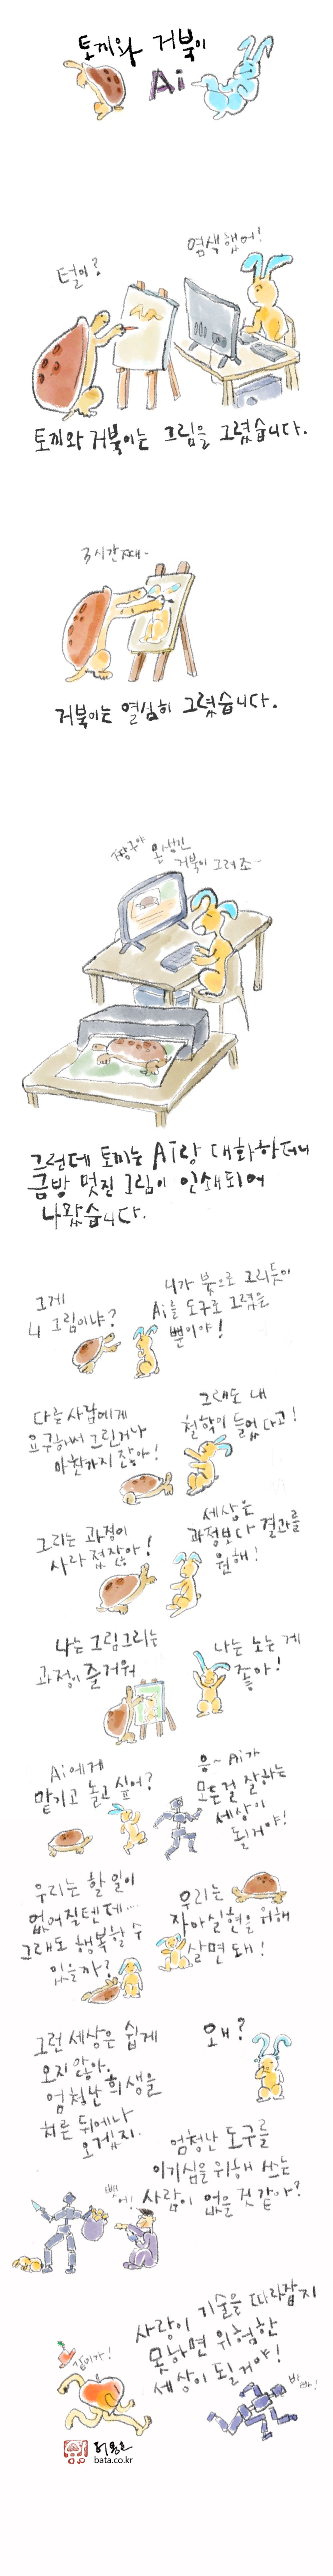 토끼와 거북이
Ai
털이?
염색했어!
토끼와 거북이는 그림을 그렸습니다.
3시간째~
거북이는 열심히 그렸습니다.
짱구야
못생긴
거북이 그려줘~
그런데 토끼는 Ai랑 대화하더니
금방 멋진 그림이 인쇄되어
나왔습니다.
그게
니 그림이냐?
니가 붓으로 그리듯이
Ai를 도구로 그렸을
뿐이야!
다른사람에게
요구해서 그린거나
마찬가지 잖아!
그래도 내
철학이 들었다고!
그리는 과정이
사라졌잖아!
세상은
과정보다 결과를
원해!
나는 그림그리는
과정이 즐거워
나는 노는 게
좋아!
Ai에게
맡기고 놀고 싶어?
응~ Ai가
모든걸 잘하는
세상이
될거야!
우리는 할 일이
없어질텐데....
그래도 행복할 수
있을까?
우리는
자아실현을 위해
살면 돼!
그런 세상은 쉽게
오지 않아.
엄청난 희생을
치른 뒤에나
오겠지.
왜?
엄청난 도구를
이기심을 위해 쓰는
사람이 없을 것 같아?
사랑이 기술을 따라잡지
못하면 위험한
세상이 될거야!
같이가!
bata.co.kr